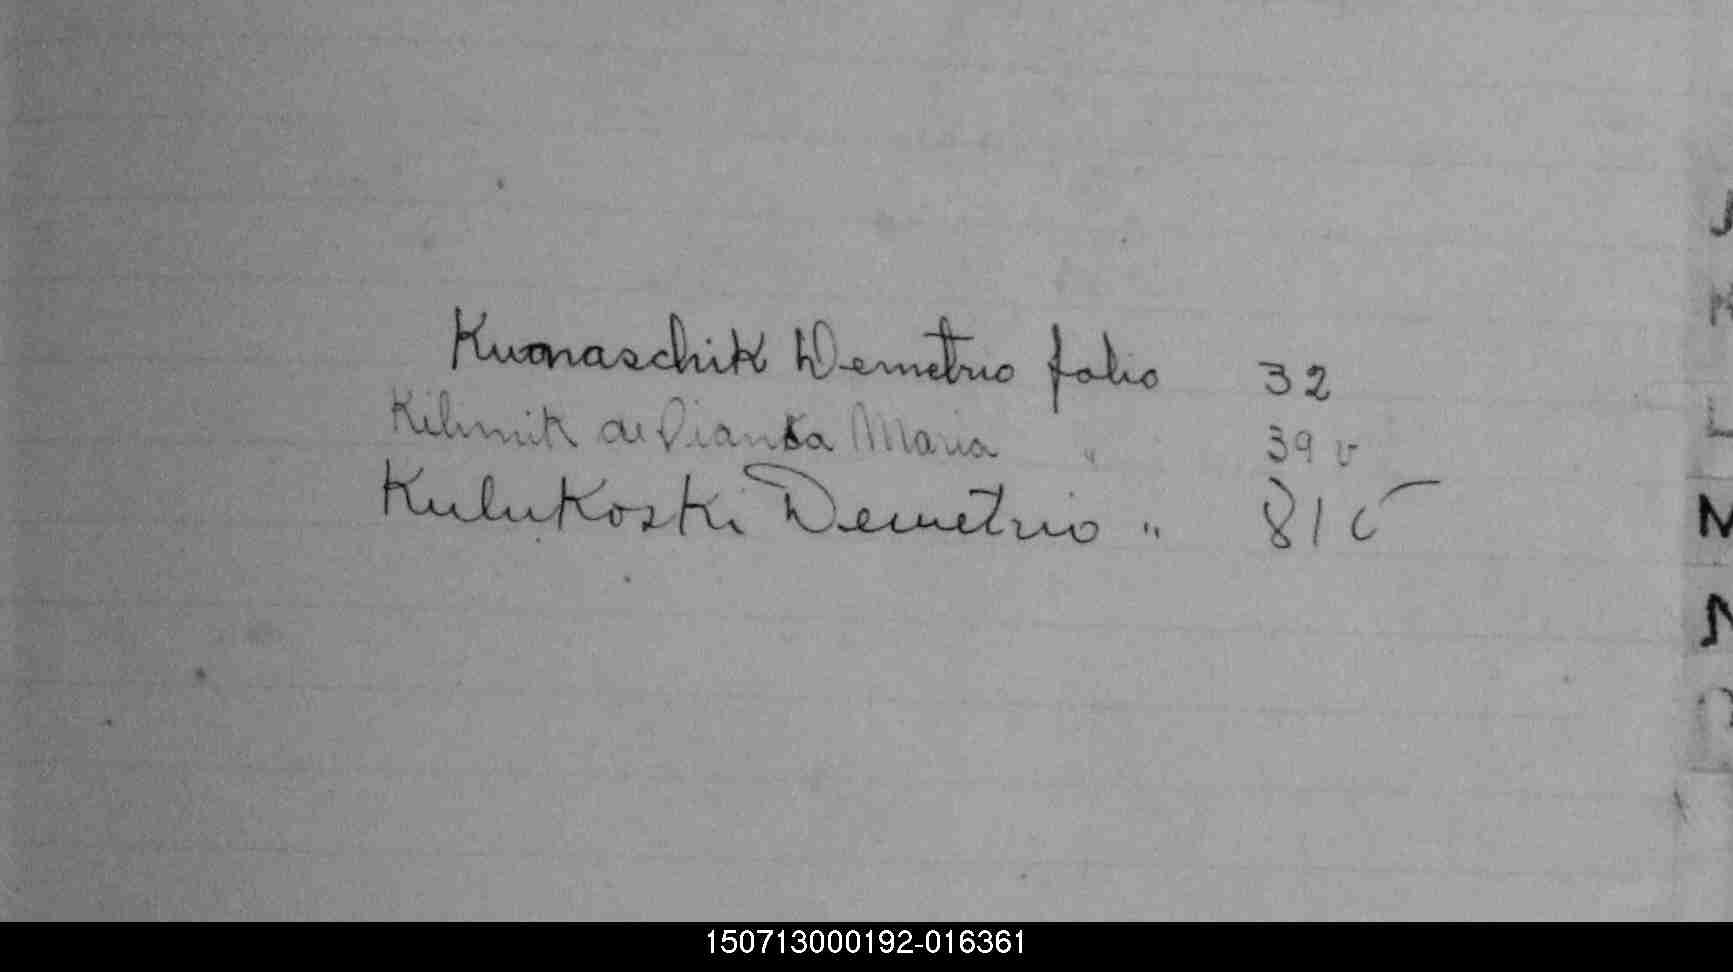 Kumaschik Demetrio folio 32
Kilimik de Pianka Maria " 39 v
Kulukoski Demetrio " 81 v
J
K
L
M
N
150713000192-016361